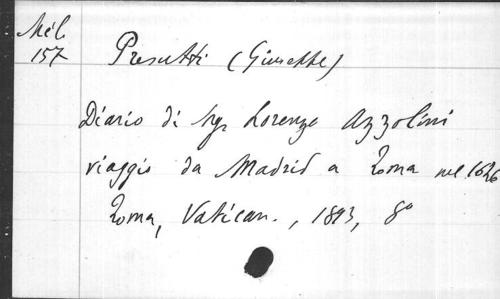 Mél.
157
Presutti (Giuseppe)
Diario di Mgr Lorenzo Azzolini
viaggio da Madrid a Roma nel 1626
Roma, Vatican., 1893, 8°